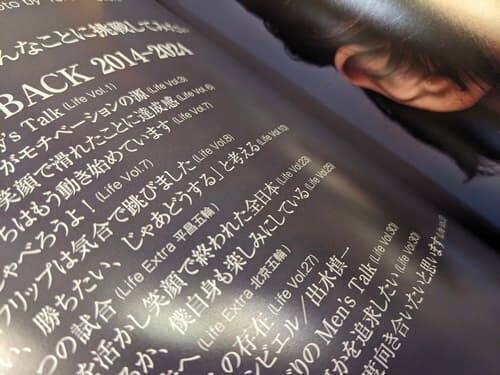 oto by
んなことに挑戦してみ
BACK 2014-2024
y's Talk (Life Vol.1)
がモチベーションの源 (Life Vol.3)
笑顔で滑れたことに達成感 (Life Vol.6)
ちはもう動き始めています (Life Vol.7)
しゃべろうよ！ (Life Vol.7)
フリップは気合で跳びました (Life Vol.8)
い、勝ちたい、じゃあどうする」と考える (Life Vol.10)
つの試合 (Life Extra 平昌五輪)
を活かし笑顔で終われた全日本 (Life Vol.23)
るか、僕自身も楽しみにしている (Life Vol.25)
へ (Life Extra 北京五輪)
の存在 (Life Vol.27)
ンビエル／出水慎一
りの Men's Talk (Life Vol.30)
かを追求したい (Life Vol.30)
度向き合いたいと思います